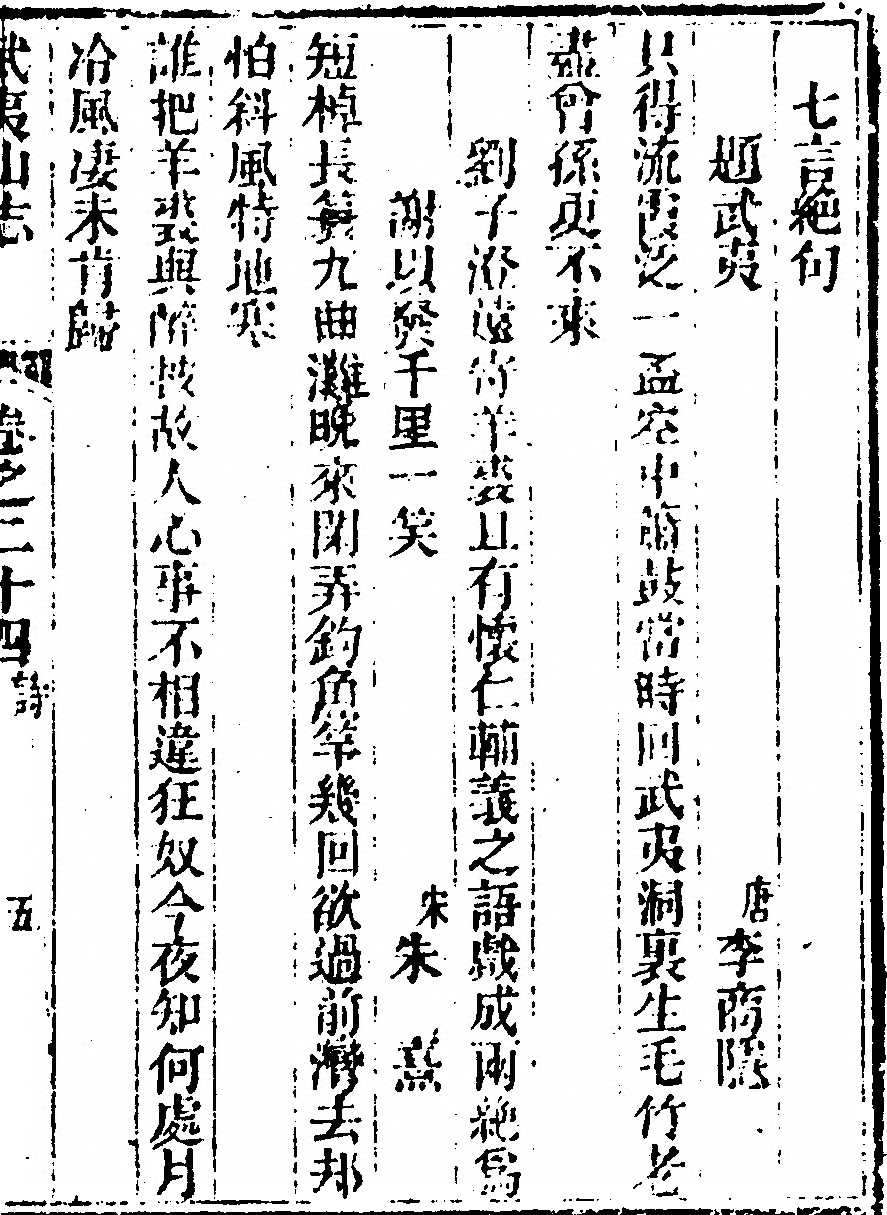 七言絕句
題武夷 唐李商隱
只得流霞泛一盃空中簫鼓當時回武夷洞裏生毛竹老
盡曾孫更不來
劉子澄遠寄羊裘且有懷仁輔義之語戲成兩絕爲
謝以發千里一笑 宋朱熹
短棹長簑九曲灘晚來閑弄釣魚竿幾回欲過前灣去却
怕斜風特地寒
誰把羊裘與醉披故人心事不相違狂奴今夜知何處月
冷風凄未肯歸
武夷山志 卷之二十四 詩 五